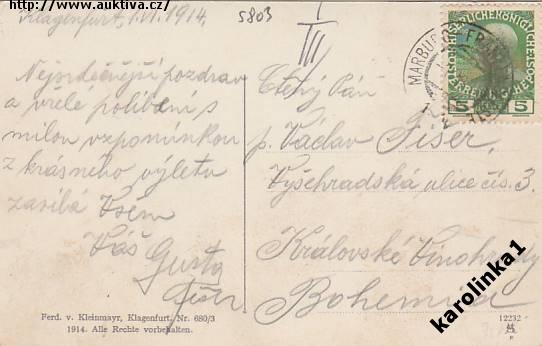 http://www.auktiva.cz/
Klagenfurt, 1.VI.1914.
5803
III
Nejsrdečnější pozdrav
a vřelé políbení s
milou vzpomínkou
z krásného výletu
zasílá Všem
Váš Gusta
Fišer
Ctěný Pán
p. Václav Fišer,
Vyšehradská ulice čís. 3.
Královské Vinohrady
Bohemia
MARBURG FRANZ
5 5
Ferd. v. Kleinmayr, Klagenfurt, Nr. 680/3
1914. Alle Rechte vorbehalten.
12232
karolinka1